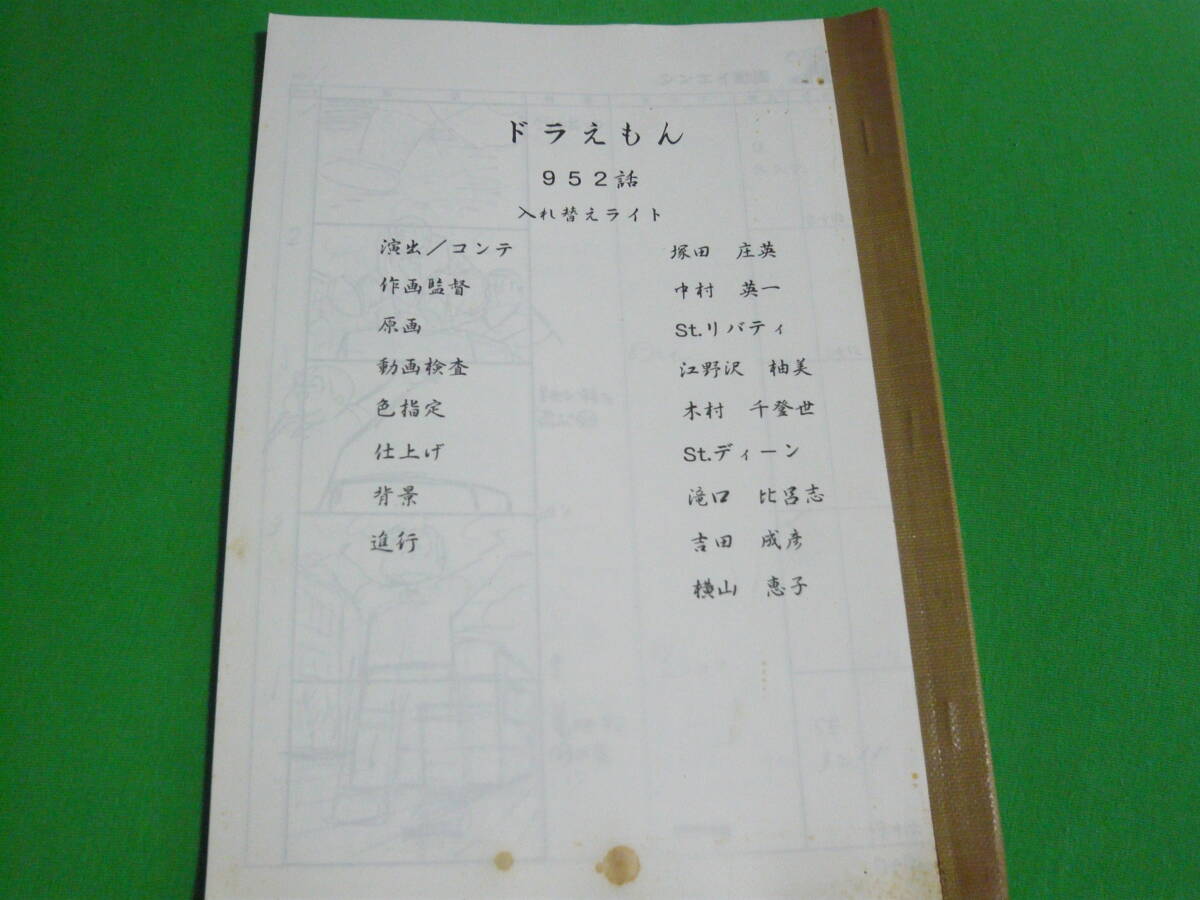 ドラえもん
952話
入れ替えライト
演出／コンテ　塚田　庄英
作画監督　中村　英一
原画　St.リバティ
動画検査　江野沢　柚美
色指定　木村　千登世
仕上げ　St.ディーン
背景　滝口　比呂志
進行　吉田　成彦
横山　恵子